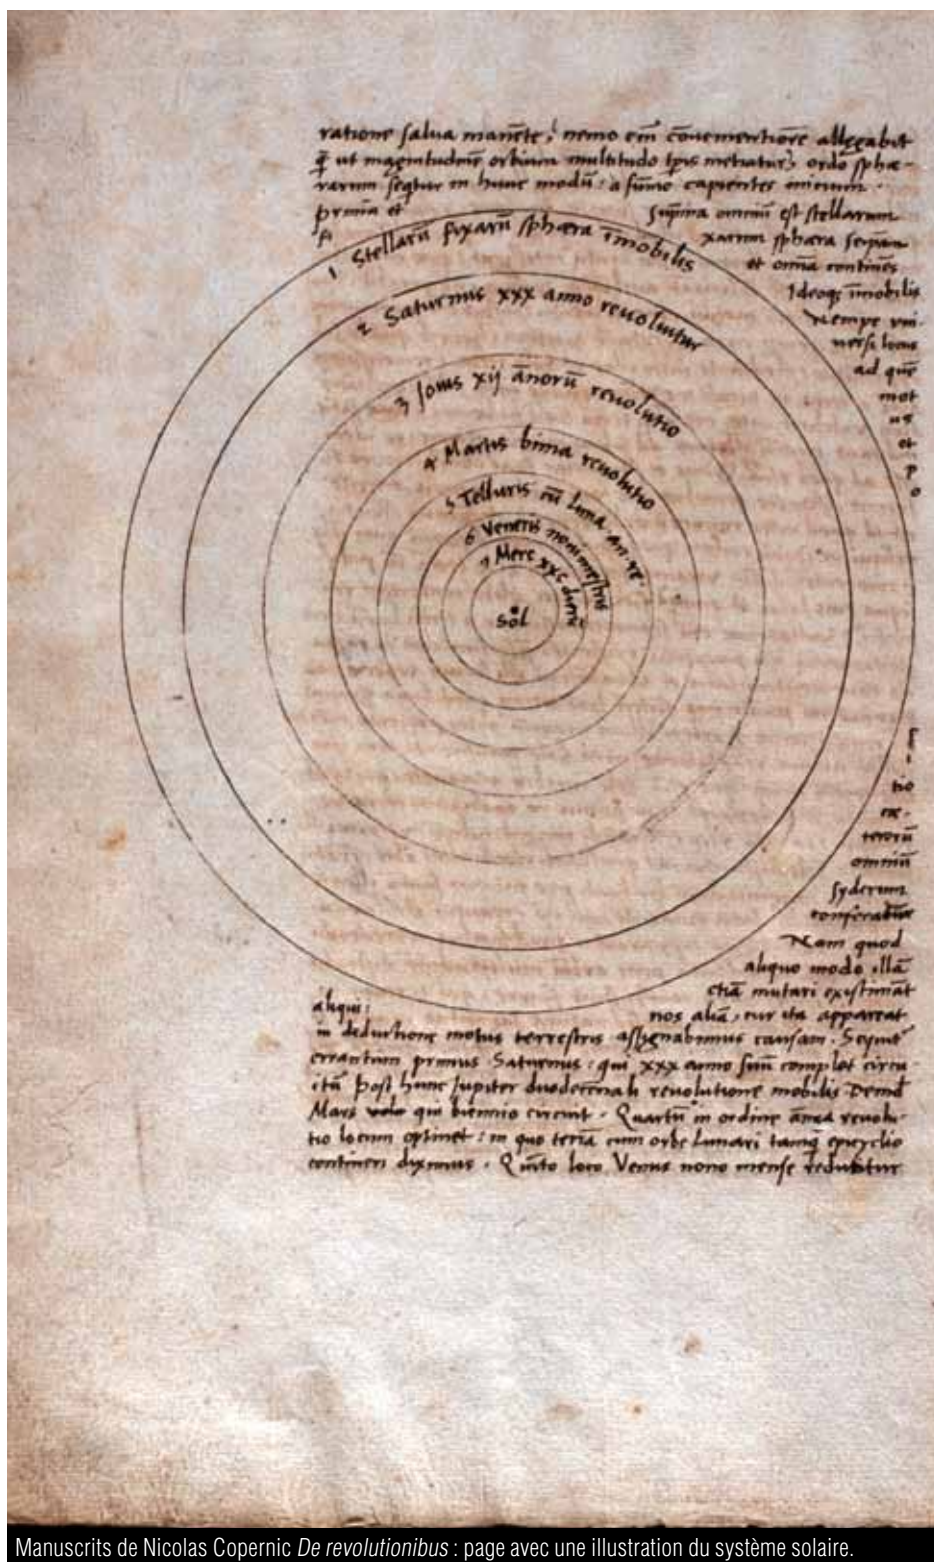 ratione salva manēte, nemo em̄ cōvenientiorē allegabit
q̄ ut magnitudinē orbium multitudo tp̄is metiatur, ordo sphæ-
rarum seqtur in hunc modū: a sum̄o capientes initium.
prima et
fi
Suprema omniū est stellarum
xarum sphæra seipsam
et omnia continēs
Ideoq; īmobilis
Nempe uni
versi locus
ad quē
mot
us
et
p
o
1 Stellarū fixarū sphæra īmobilis
2 Saturnus xxx anno revolvitur
3 Jovis xij ānorū revolutio
4 Martis bima revolutio
5 Telluris cū luna an. re.
6 Veneris nonimestris
7 Merc xxc dierū
Sol
tio
cæ-
terorū
omniū
syderum
conferatur
Nam quod
aliquo modo illā
etiā mutari existimāt
aliqui:
nos aliā, cur ita appareat
in deductione motus terrestris assignabimus causam. Sequit̄
errantium primus Saturnus: qui xxx anno suū complet circu-
itū Post hunc Jupiter duodecēnali revolutione mobilis Deind̄
Mars qui biennio circuit. Quartū in ordine ānua revolu-
tio locum optinet: in quo terrā cum orbe Lunari tamq̄ epicyclio
contineri diximus. Quīto loco Venus nono mense reducitur
Manuscrits de Nicolas Copernic De revolutionibus : page avec une illustration du système solaire.